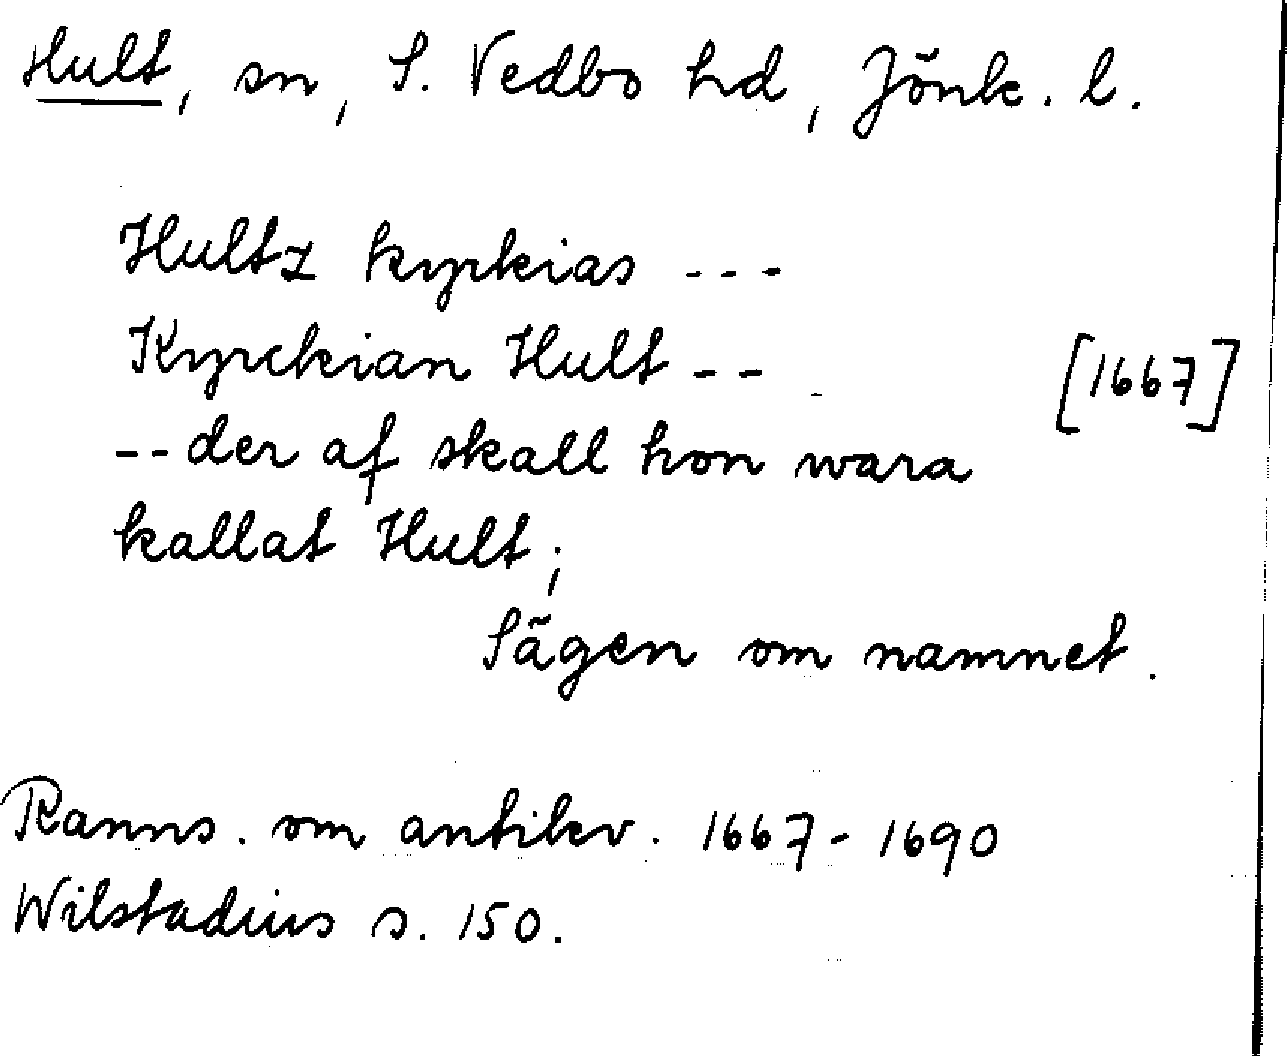 Hult, sn, S. Vedbo hd, Jönk. l.
Hultz kyrkias ---
Kyrckian Hult -- [1667]
-- der af skall hon wara
kallat Hult;
Sägen om namnet.
Ranns. om antikv. 1667-1690
Wilstadius s. 150.